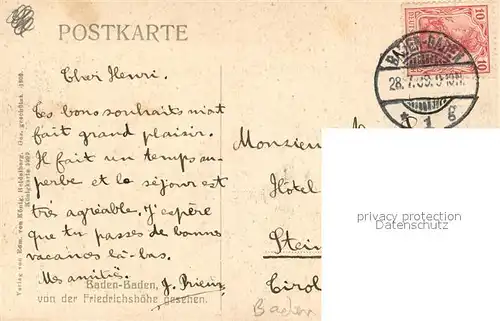 POSTKARTE
10
10
BADEN-BADEN
28.7.09.9-10V.
* 1 g
Cher Henri.
Tes bons souhaits m'ont
fait grand plaisir.
Il fait un temps su-
perbe et le séjour est
très agréable. J'espère
que tu passes de bonnes
vacances là-bas.
Mes amitiés. J. Prieur
Monsieur
Hôtel
Stein
Tirol
privacy protection
Datenschutz
Baden-Baden,
von der Friedrichshöhe gesehen.
Baden
Verlag von Edm. von König, Heidelberg. Ges. geschützt 1909.